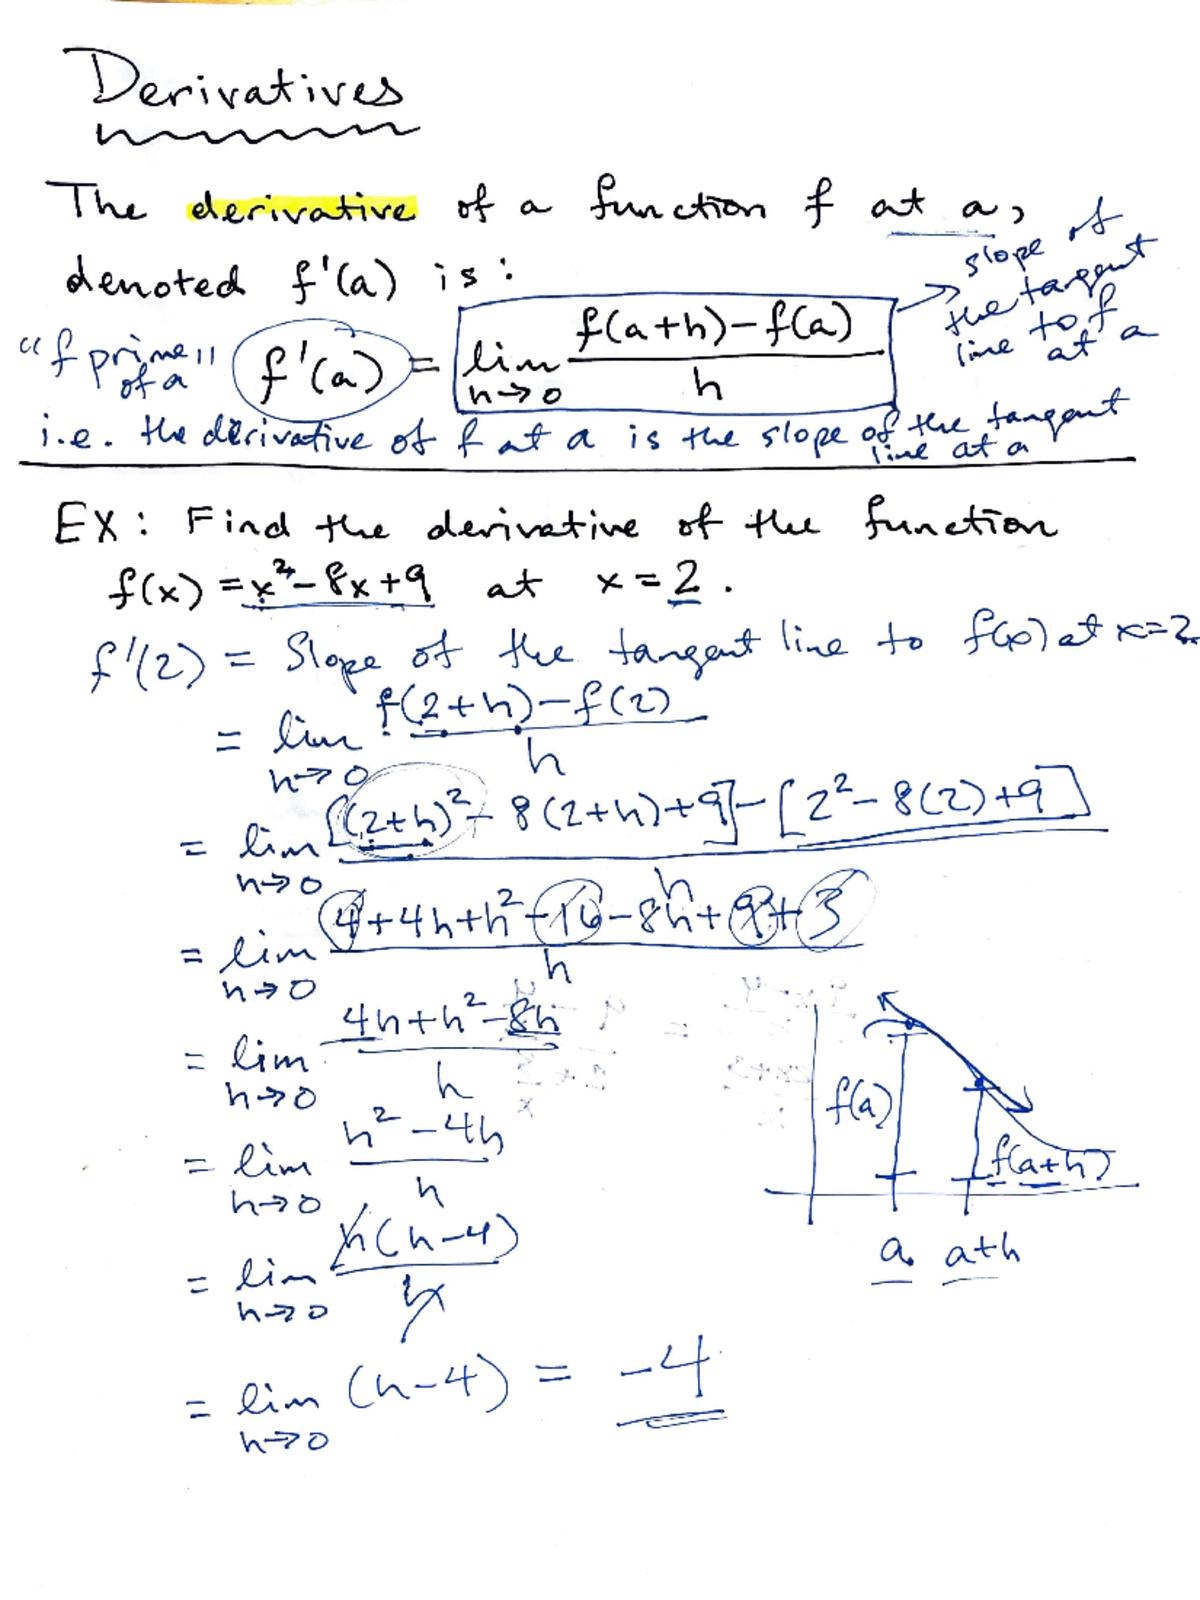 Derivatives
The derivative of a function f at a,
denoted f'(a) is:
"f prime of a" f'(a) = lim h→0 f(a+h)-f(a) / h
slope of
the tangent
line to f
at a
i.e. the derivative of f at a is the slope of the tangent
line at a
EX: Find the derivative of the function
f(x) = x²-8x+9 at x=2.
f'(2) = Slope of the tangent line to f(x) at x=2.
= lim h→0 f(2+h)-f(2) / h
= lim h→0 [(2+h)²-8(2+h)+9]-[2²-8(2)+9] / h
= lim h→0 4+4h+h²-16-8h+9+3 / h
= lim h→0 4h+h²-8h / h
= lim h→0 h²-4h / h
= lim h→0 h(h-4) / h
= lim h→0 (h-4) = -4
f(a)
f(a+h)
a a+h